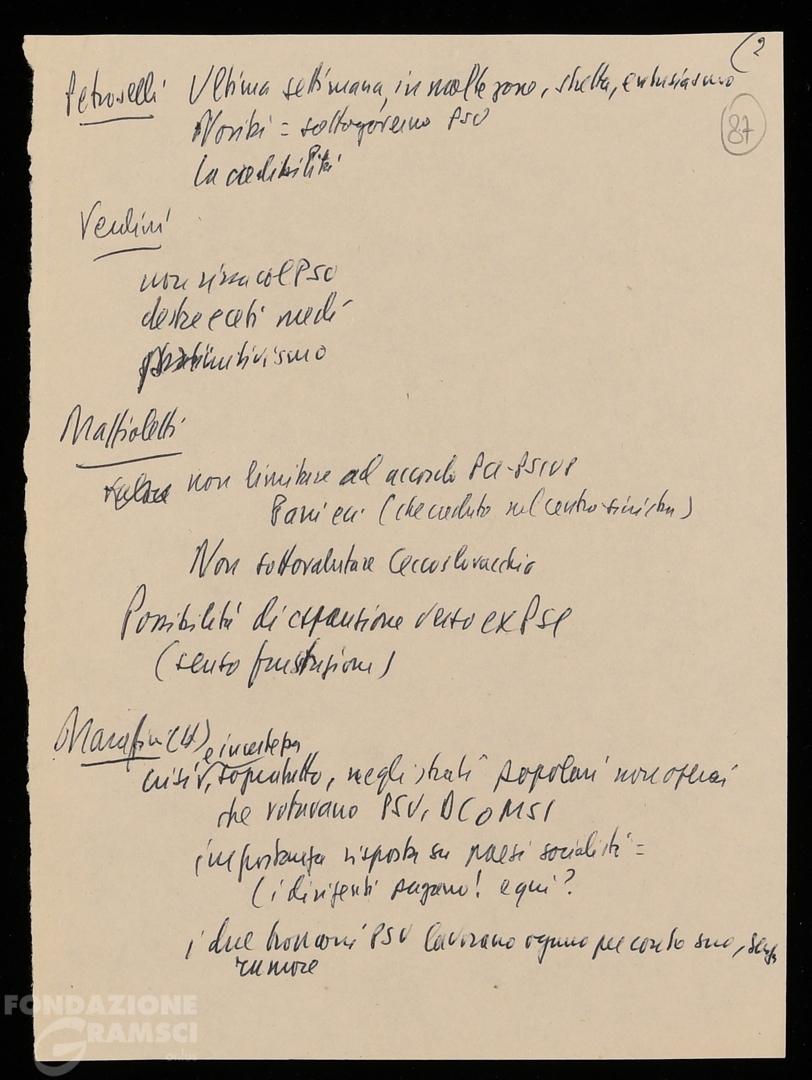 (2
87
Petroselli Ultima settimana, in molte zone, stretta, entusiasmo
Novità = sottogoverno PSU
la credibilità
Verdini
non rissa col PSU
destre e ceti medi
Maffioletti
non limitare ad accordo PCI-PSIUP
Parri ecc (che caduto sul centro-sinistra)
Non sottovalutare Cecoslovacchia
Possibilità di espansione verso ex PSI
(senso frustrazione)
Marafini (H)
e incertezza
crisi, sopratutto, negli strati popolari non operai
che votavano PSU, DC o MSI
importanza risposta su paesi socialisti =
(i dirigenti pagano! e qui?
i due tronconi PSU lavorano ognuno per conto suo, senza
rumore
FONDAZIONE
GRAMSCI
onlus